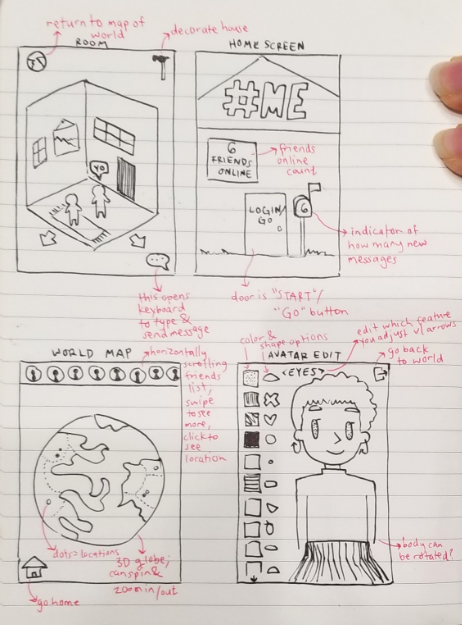 return to map of
world
decorate house
ROOM
HOME SCREEN
#ME
6
FRIENDS
ONLINE
friends
online
count
YO
LOGIN/
GO
6
indicator of
how many new
messages
this opens
keyboard
to type &
send message
door is "START"/
"GO" button
WORLD MAP
horizontally
scrolling
friends
list,
swipe
to see
more,
click to
see
location
dots=locations
3D globe;
can spin &
zoom in/out
go home
color &
shape options
edit which feature
you adjust w/ arrows
AVATAR EDIT
<EYES>
go back
to world
body can
be rotated?